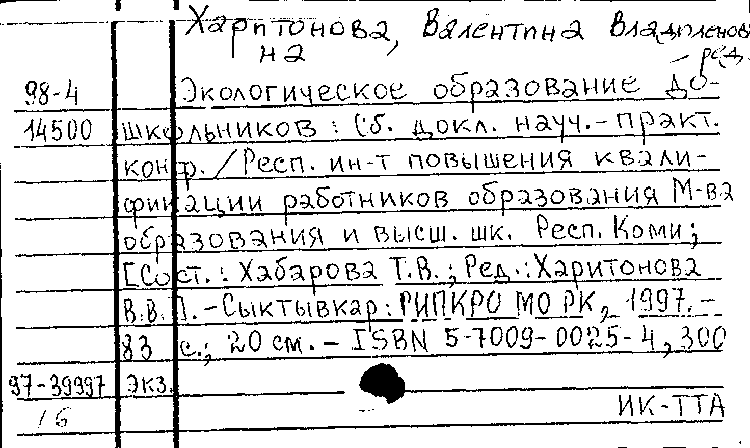 Харитонова, Валентина Владиленов
на
– ред.
98-4 Экологическое образование до-
14500 школьников : Сб. докл. науч.-практ.
конф. / Респ. ин-т повышения квали-
фикации работников образования М-ва
образования и высш. шк. Респ. Коми ;
[Сост. : Хабарова Т.В. ; Ред. : Харитонова
В.В.]. – Сыктывкар : РИПКРО МО РК, 1997. –
83 с.; 20 см. – ISBN 5-7009-0025-4, 300
97-39997 экз.
16 ИК-ТТА